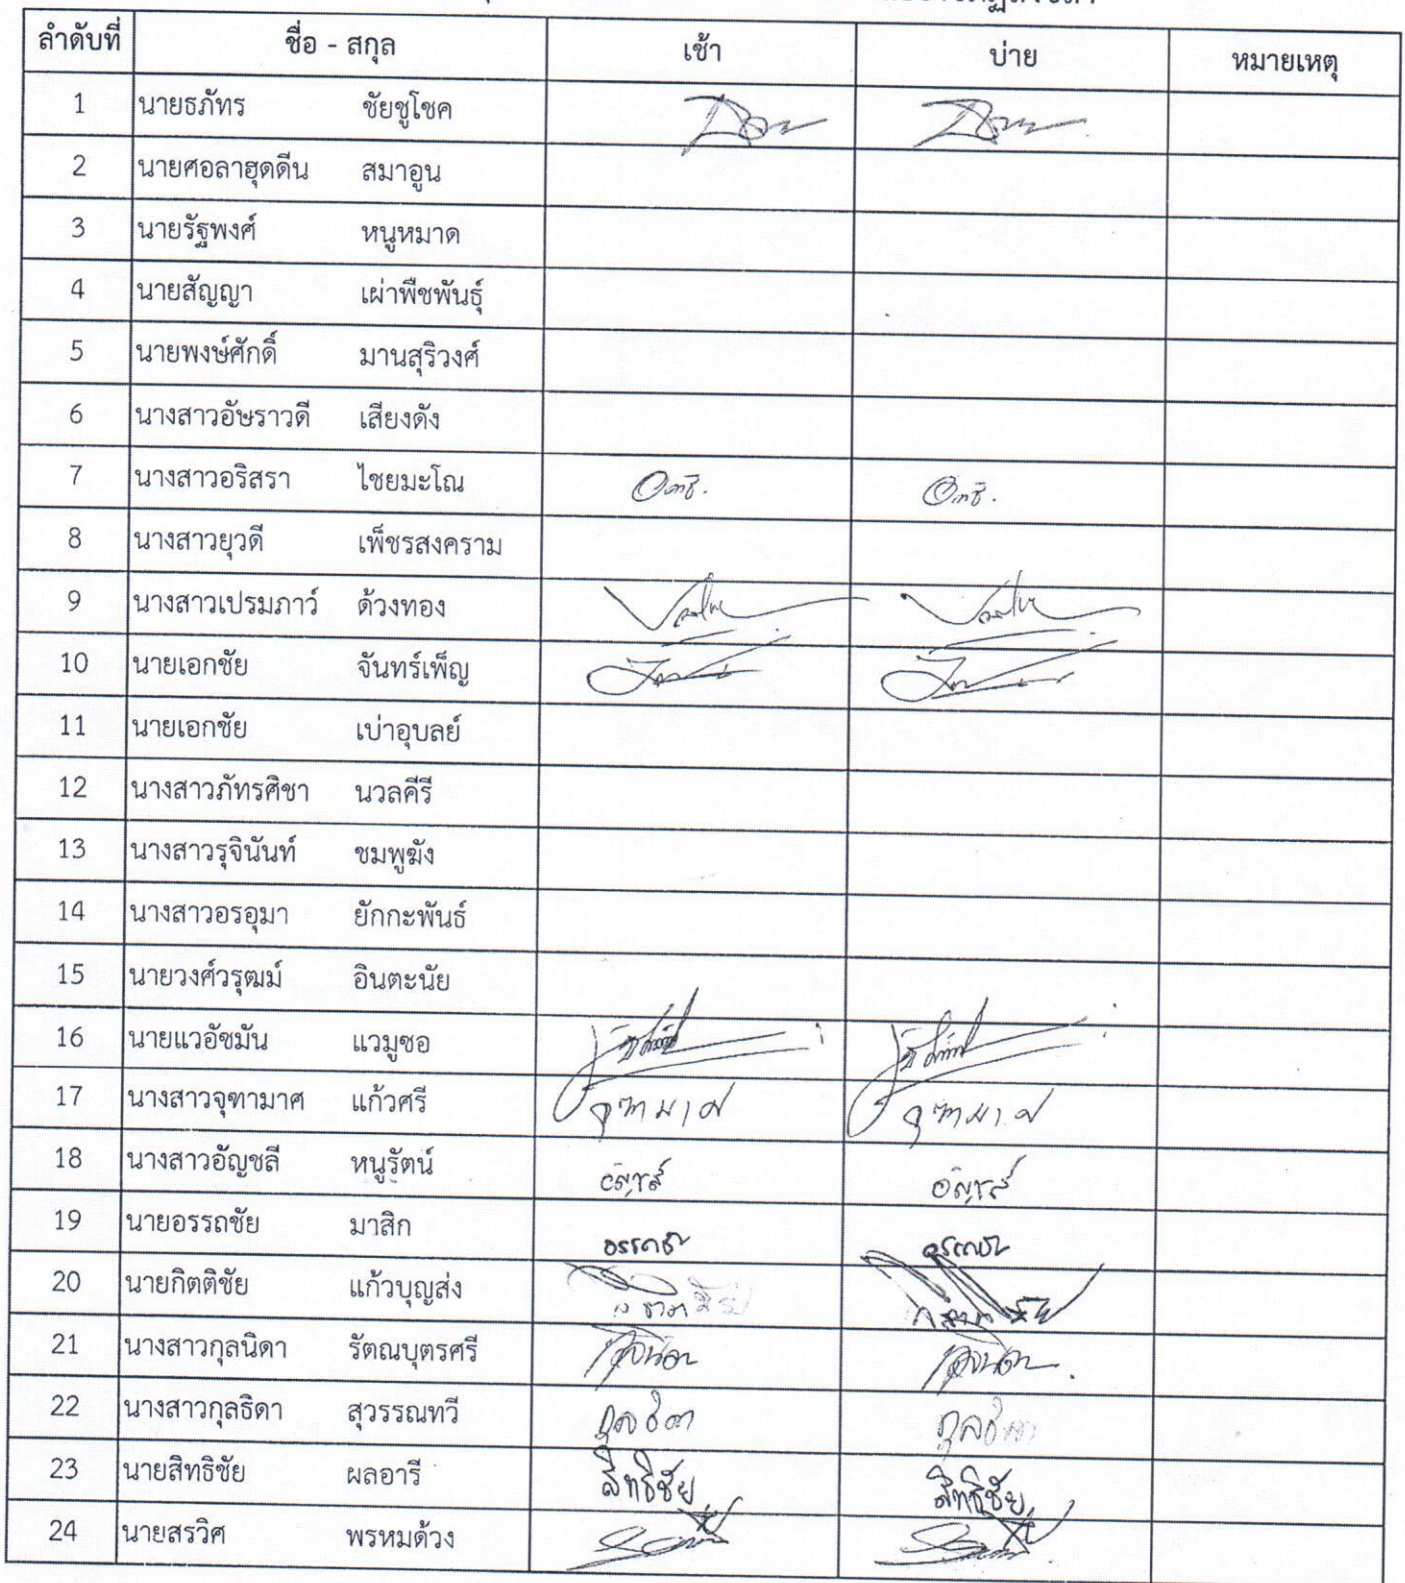 ลำดับที่ ชื่อ - สกุล เช้า บ่าย หมายเหตุ
1 นายธภัทร ชัยชูโชค
2 นายศอลาฮุดดีน สมาอูน
3 นายรัฐพงศ์ หนูหมาด
4 นายสัญญา เผ่าพืชพันธุ์
5 นายพงษ์ศักดิ์ มานสุริวงศ์
6 นางสาวอัษราวดี เสียงดัง
7 นางสาวอริสรา ไชยมะโณ
8 นางสาวยุวดี เพ็ชรสงคราม
9 นางสาวเปรมภาว์ ด้วงทอง
10 นายเอกชัย จันทร์เพ็ญ
11 นายเอกชัย เบ่าอุบลย์
12 นางสาวภัทรศิชา นวลคีรี
13 นางสาวรุจินันท์ ชมพูฆัง
14 นางสาวอรอุมา ยักกะพันธ์
15 นายวงศ์วรุฒม์ อินตะนัย
16 นายแวอัซมัน แวมูซอ
17 นางสาวจุฑามาศ แก้วศรี จุฑามาศ จุฑามาศ
18 นางสาวอัญชลี หนูรัตน์ อัญชลี อัญชลี
19 นายอรรถชัย มาสิก อรรถชัย อรรถชัย
20 นายกิตติชัย แก้วบุญส่ง
21 นางสาวกุลนิดา รัตณบุตรศรี กุลนิดา กุลนิดา
22 นางสาวกุลธิดา สุวรรณทวี กุลธิดา กุลธิดา
23 นายสิทธิชัย ผลอารี สิทธิชัย สิทธิชัย
24 นายสรวิศ พรหมด้วง